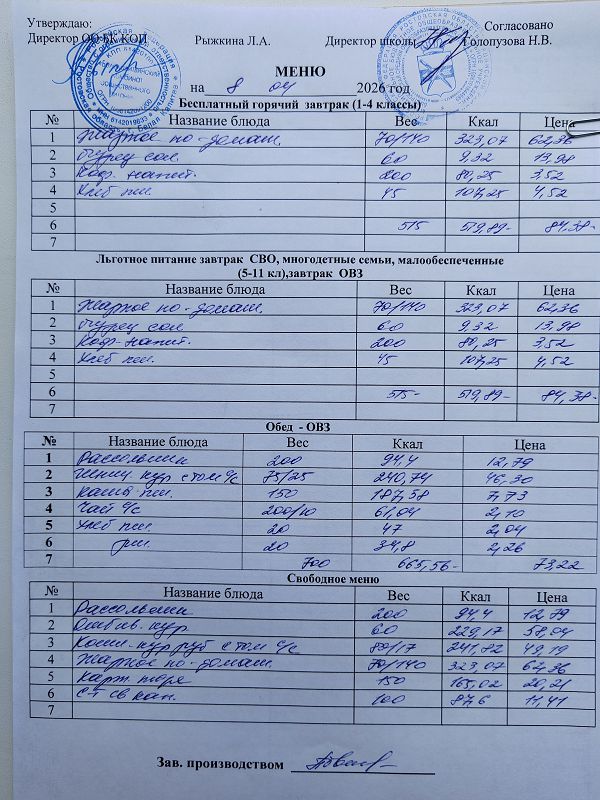 Утверждаю:
Согласовано
Директор ООО БК КОП Рыжкина Л.А. Директор школы Голопузова Н.В.
МЕНЮ
на 8 04 2026 год
Бесплатный горячий завтрак (1-4 классы)
№ Название блюда Вес Ккал Цена
1 Жаркое по-домаш. 70/140 323,07 62,36
2 Огурец сол. 60 9,32 13,98
3 Коф. напит. 200 80,25 3,52
4 Хлеб пш. 45 107,25 4,52
5
6 515 519,89- 84,38-
7
Льготное питание завтрак СВО, многодетные семьи, малообеспеченные
(5-11 кл),завтрак ОВЗ
№ Название блюда Вес Ккал Цена
1 Жаркое по-домаш. 70/140 323,07 62,36
2 Огурец сол. 60 9,32 13,98
3 Коф-напит. 200 80,25 3,52
4 Хлеб пш. 45 107,25 4,52
5
6 515- 519,89- 84,38-
7
Обед - ОВЗ
№ Название блюда Вес Ккал Цена
1 Рассольник 200 94,4 12,79
2 кур с том с/с 75/25 240,74 46,30
3 Каша пш. 150 187,58 7,73
4 Чай с/с 200/10 61,04 2,10
5 Хлеб пш. 20 47 2,04
6 рж. 20 34,8 2,26
7 700 665,56- 73,22
Свободное меню
№ Название блюда Вес Ккал Цена
1 Рассольник 200 94,4 12,79
2 кур. 60 229,17 58,04
3 кур руб с том с/с 80/17 241,82 49,19
4 Жаркое по-домаш. 70/140 323,07 62,36
5 Карт. пюре 150 165,02 20,21
6 С-т св кап. 100 87,6 11,41
7
Зав. производством